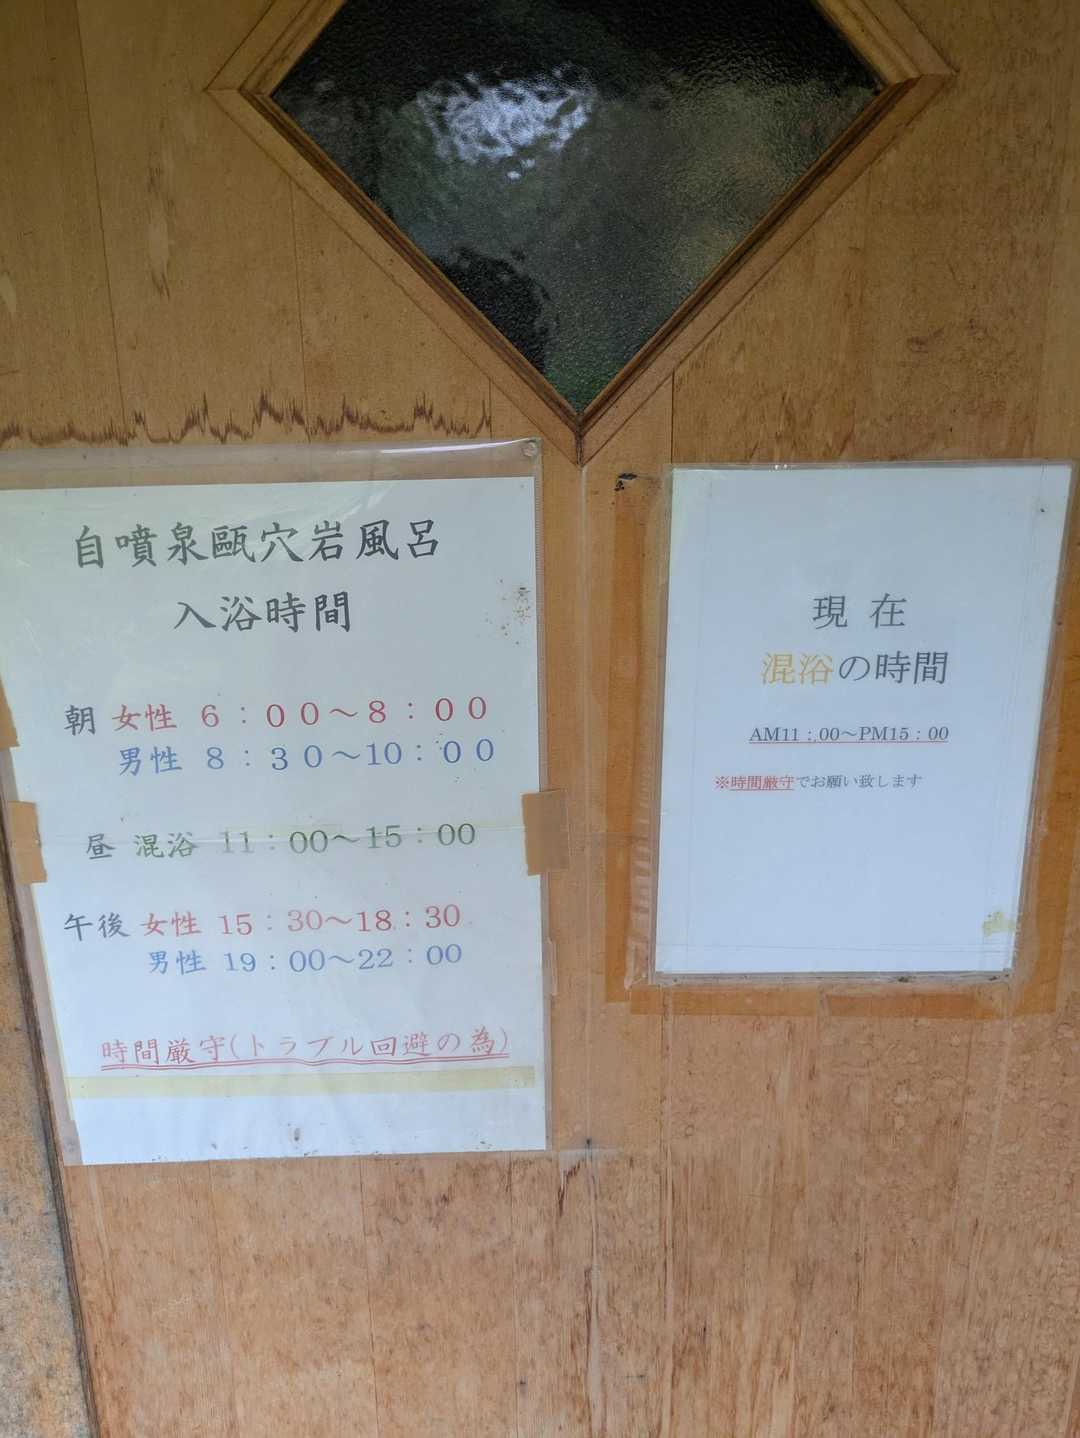 自噴泉甌穴岩風呂
入浴時間
朝 女性 6：00～8：00
男性 8：30～10：00
昼 混浴 11：00～15：00
午後 女性 15：30～18：30
男性 19：00～22：00
時間厳守(トラブル回避の為)
現在
混浴の時間
AM11：00～PM15：00
※時間厳守でお願い致します